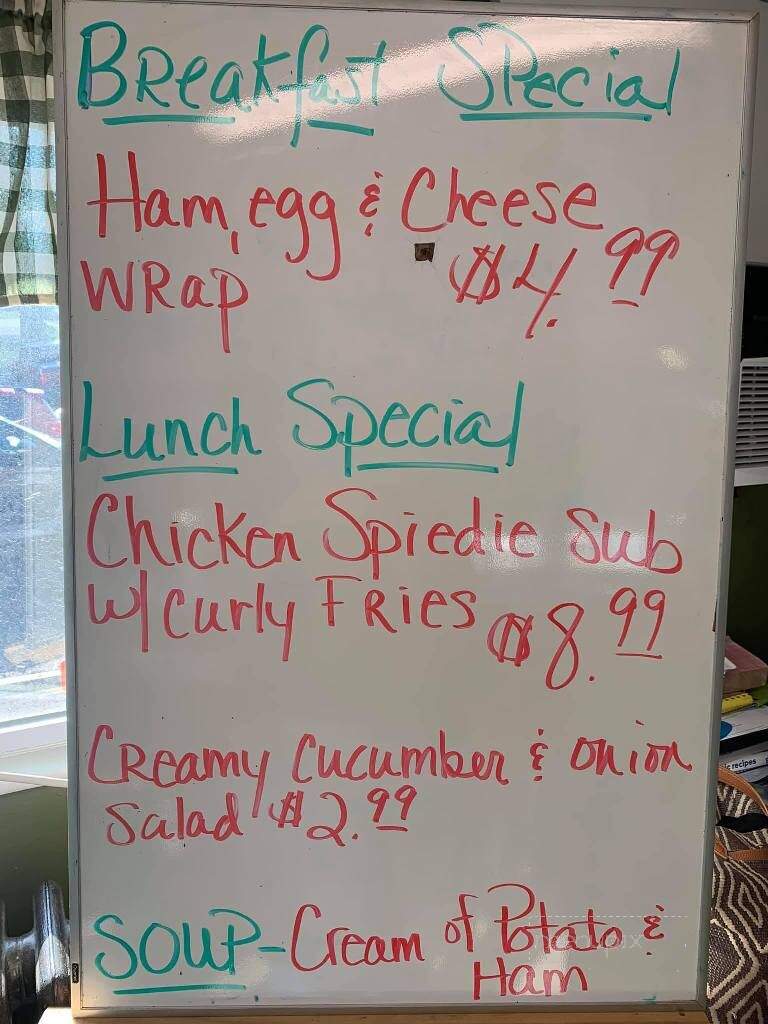 Breakfast Special
Ham, egg & Cheese
Wrap $4.99
Lunch Special
Chicken Spiedie Sub
w/ Curly Fries $8.99
Creamy Cucumber & Onion
Salad $2.99
Soup - Cream of Potato &
Ham
recipes